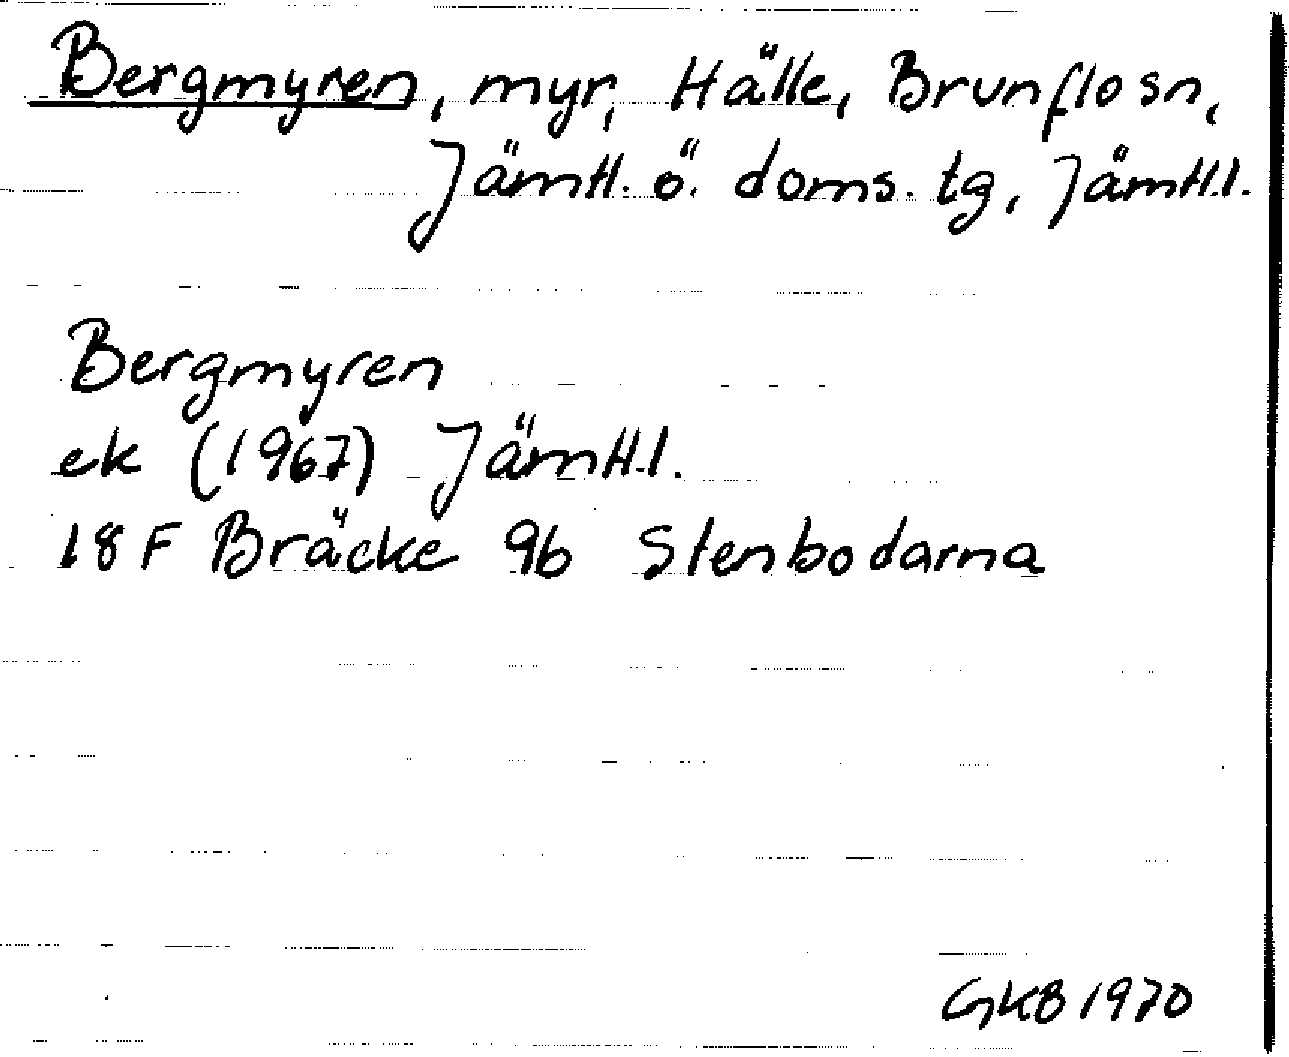 Bergmyren, myr, Hälle, Brunflo sn,
Jämtl. ö. doms. tg, Jämtl.l.
Bergmyren
ek (1967) Jämtl.l.
18 F Bräcke 9b Stenbodarna
GKB 1970